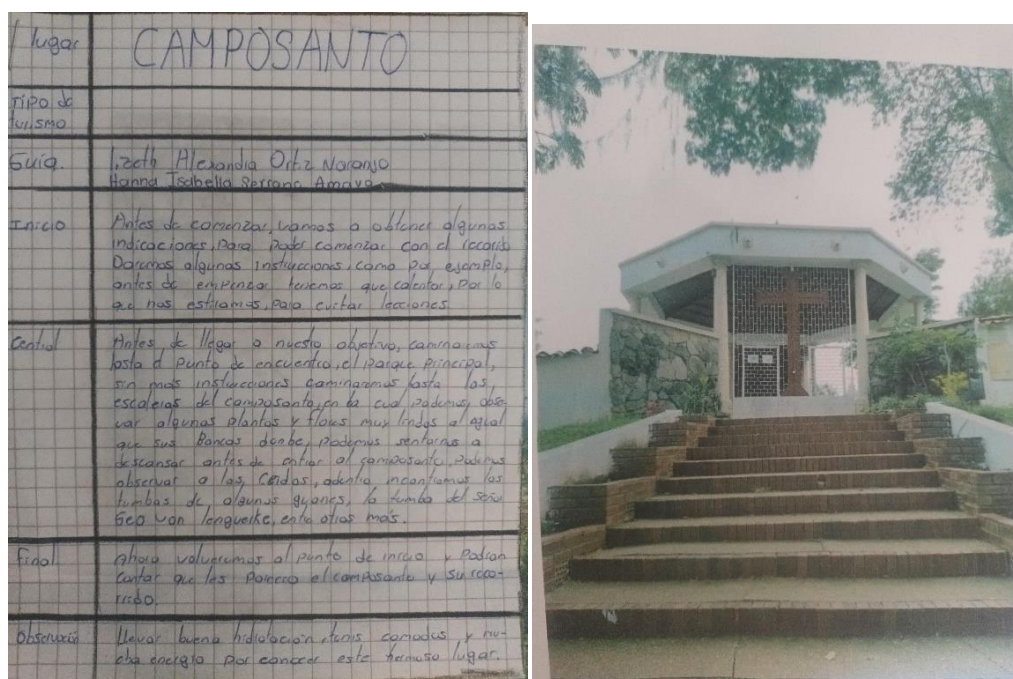 lugar
CAMPOSANTO
Tipo de
turismo
Guía.
Lizeth Alexandra Ortiz Naranjo
Hanna Isabella Serrano Amaya
Inicio
Antes de comenzar, vamos a obtener algunas
indicaciones, para poder comenzar con el recorrido
Daremos algunas instrucciones, como por ejemplo,
antes de empenzar tenemos que calentar, por lo
que nos estiramos, para evitar lecciones
Central
Antes de llegar a nuestro objetivo, caminaremos
hasta el punto de encuentro, el parque principal,
sin más instrucciones caminaremos hasta las,
escaleras del camposanto, en la cual podemos, obser-
var algunas plantas y flores muy lindas al igual
que sus Bancas donbe, podemos sentarnos a
descansar antes de entrar al camposanto, podemos
observar a las, Ceidas, adentro incontramos las
tumbas de algunos guanes, la tumba del señor
Geo von lenguerke, entre otras más.
Final
Ahora volveremos al punto de inicio y Podran
Contar que les Parecio el camposanto y su reco-
rrido.
Observación
Llevar buena hidratación, tenis comodos y mu-
cha energia por conocer este hermoso lugar.